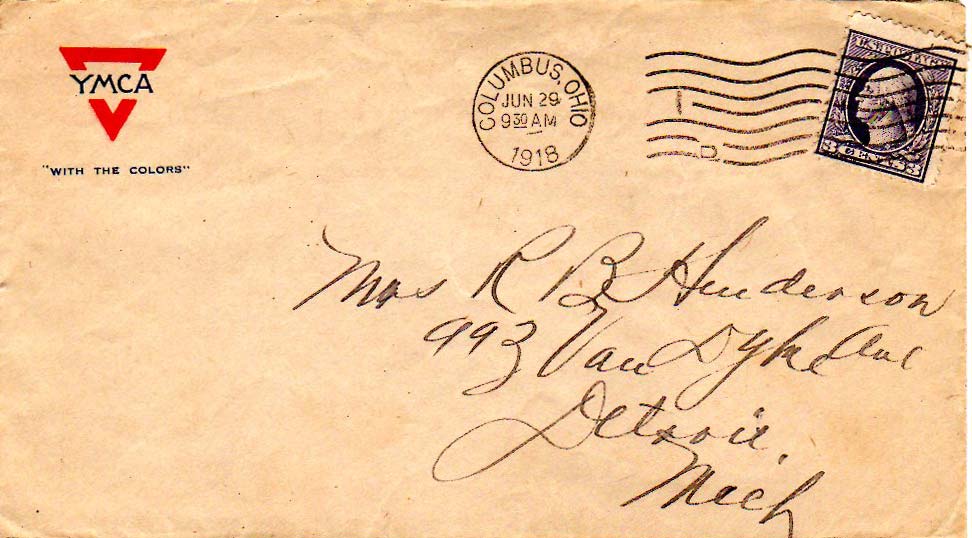 YMCA
"WITH THE COLORS"
COLUMBUS, OHIO
JUN 29
9 30 AM
1918
1
D
U.S. POSTAGE
3 CENTS 3
Mrs R B Henderson
993 Van Dyke Ave
Detroit,
Mich